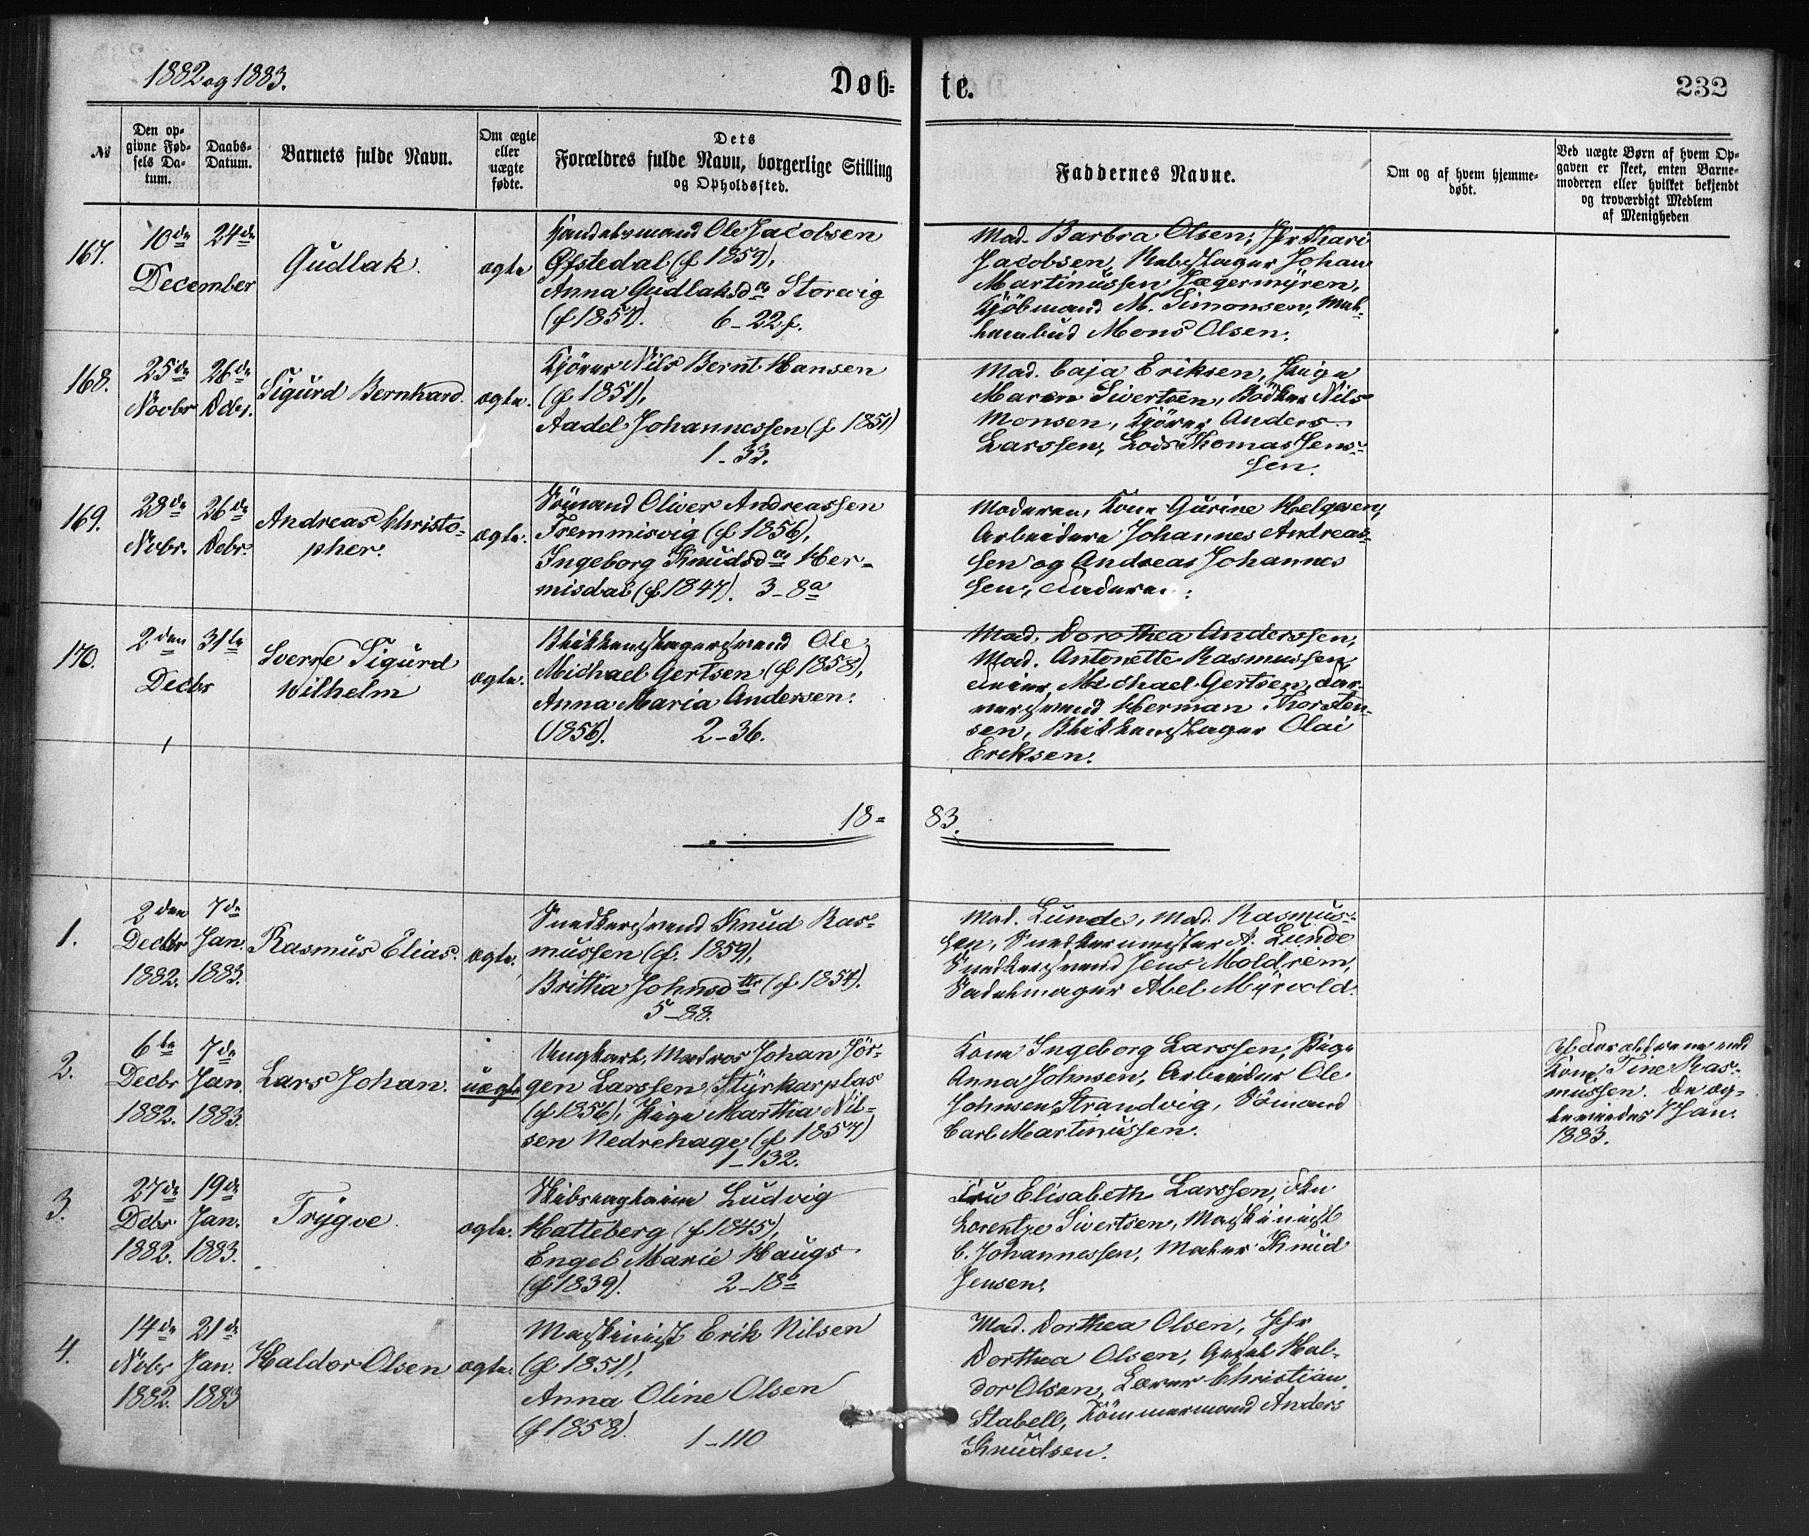 1882 og 1883.
Døb-
te.
232
No
Den op-
givne Fød-
sels Da-
tum.
Daabs-
Datum.
Barnets fulde Navn.
Om ægte
eller
uægte
fødte.
Dets
Forældres fulde Navn, borgerlige Stilling
og Opholdssted.
Faddernes Navne.
Om og af hvem hjemme-
døbt.
Ved uægte Børn af hvem Op-
gaven er skeet, enten Barne-
moderen eller hvilket bekjendt
og troværdigt Medlem
af Menigheden
167.
10de 24de
December
Gudlak.
ægte
Handelsmand Ole Jacobsen
Øfstedal (f 1859),
Anna Gudlaksda Storevig
(f 1857). 6-22f.
Mad. Barbra Olsen, Jfr Kari
Jacobsen, Rebslager Johan
Martinussen Jægermyren,
Kjöbmand M. Simonsen,
Mons Olsen.
168.
25de 26de
Novbr Dcbr.
Sigurd Bernhard.
ægte.
Kjörer Nils Bernt Hansen
(f 1851),
Aadel Johannessen (f 1851)
1-33.
Mad. Caja Eriksen, Pige
Maren Sivertsen, Bödker Nils
Monsen, Kjörer Anders
Larssen, Lods Thomas Jens-
sen.
169.
28de 26de
Novbr. Decbr.
Andreas Christo-
pher.
ægte.
Sömand Oliver Andreassen
Fremmisvig (f 1856),
Ingeborg Knudsda Her-
misdal (f 1847). 3-8a
Moderen, Kone Gurine Helgesen,
Arbeidere Johannes Andreas-
sen og Andreas Johannes
sen, Faderen.
170.
2den 31te
Decbr
Sverre Sigurd
Wilhelm
ægte.
Blikkenslagersvend Ole
Michael Gertsen (f 1858),
Anna Maria Andersen.
(1856). 2-36.
Mad. Dorothea Anderssen,
Mad. Antonette Rasmussen,
Michael Gertsen, Gar-
versvend Herman Thorsten-
sen, Blikkenslager Olai
Eriksen.
18-
83.
1.
2den 7de
Decbr Jan.
1882. 1883.
Rasmus Elias.
ægte.
Snedkersvend Knud Ras-
mussen (f. 1859),
Britha Johnsdtr (f 1854).
5-88.
Mad. Lunde, Mad. Rasmus-
sen, Snedkermester A. Lunde
Snedkersvend Jens Moldrem,
Sadelmager Abel Myrvold.
2.
6te 7de
Decbr Jan.
1882. 1883.
Lars Johan.
uægte
Ungkarl, Matros Johan Jör-
gen Larssen Styrkarplas
(f 1856), Pige Martha Nil-
sen Nedrehage (f 1857)
1-132.
Kone Ingeborg Larssen, Pige
Anna Johnsen, Arbeider Ole
Johnsen Strandvig, Sömand
Carl Martinussen.
Kone Tine Ras-
mussen. De æg-
teviedes 7 Jan.
1883.
3.
27de 19de
Dcbr Jan.
1882. 1883.
Trygve.
ægte.
Skibsreder Ludvig
Hatteberg (f 1845),
Engel Marie Haugs
(f 1839). 2-18b
Fru Elisabeth Larssen,
Lorentze Sivertsen, Maskinist
C. Johannessen, Maler Knud
Jensen.
4.
14de 21de
Novbr Jan.
1882. 1883
Haldor Olsen
ægte.
Maskinist Erik Nilsen
(f 1851),
Anna Oline Olsen
(f 1858).
1-110
Mad. Dorthea Olsen, Jfr
Dorthea Olsen, Hal-
dor Olsen, Lærer Christian
Stabell, Tömmermand Anders
Knudsen.